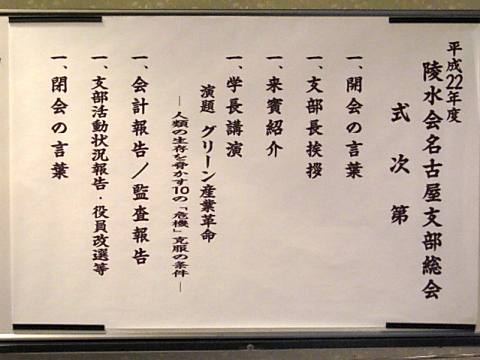 平成22年度
陵水会名古屋支部総会
式次第
一、開会の言葉
一、支部長挨拶
一、来賓紹介
一、学長講演
演題 グリーン産業革命
―人類の生存を脅かす10の「危機」克服の条件―
一、会計報告／監査報告
一、支部活動状況報告・役員改選等
一、閉会の言葉